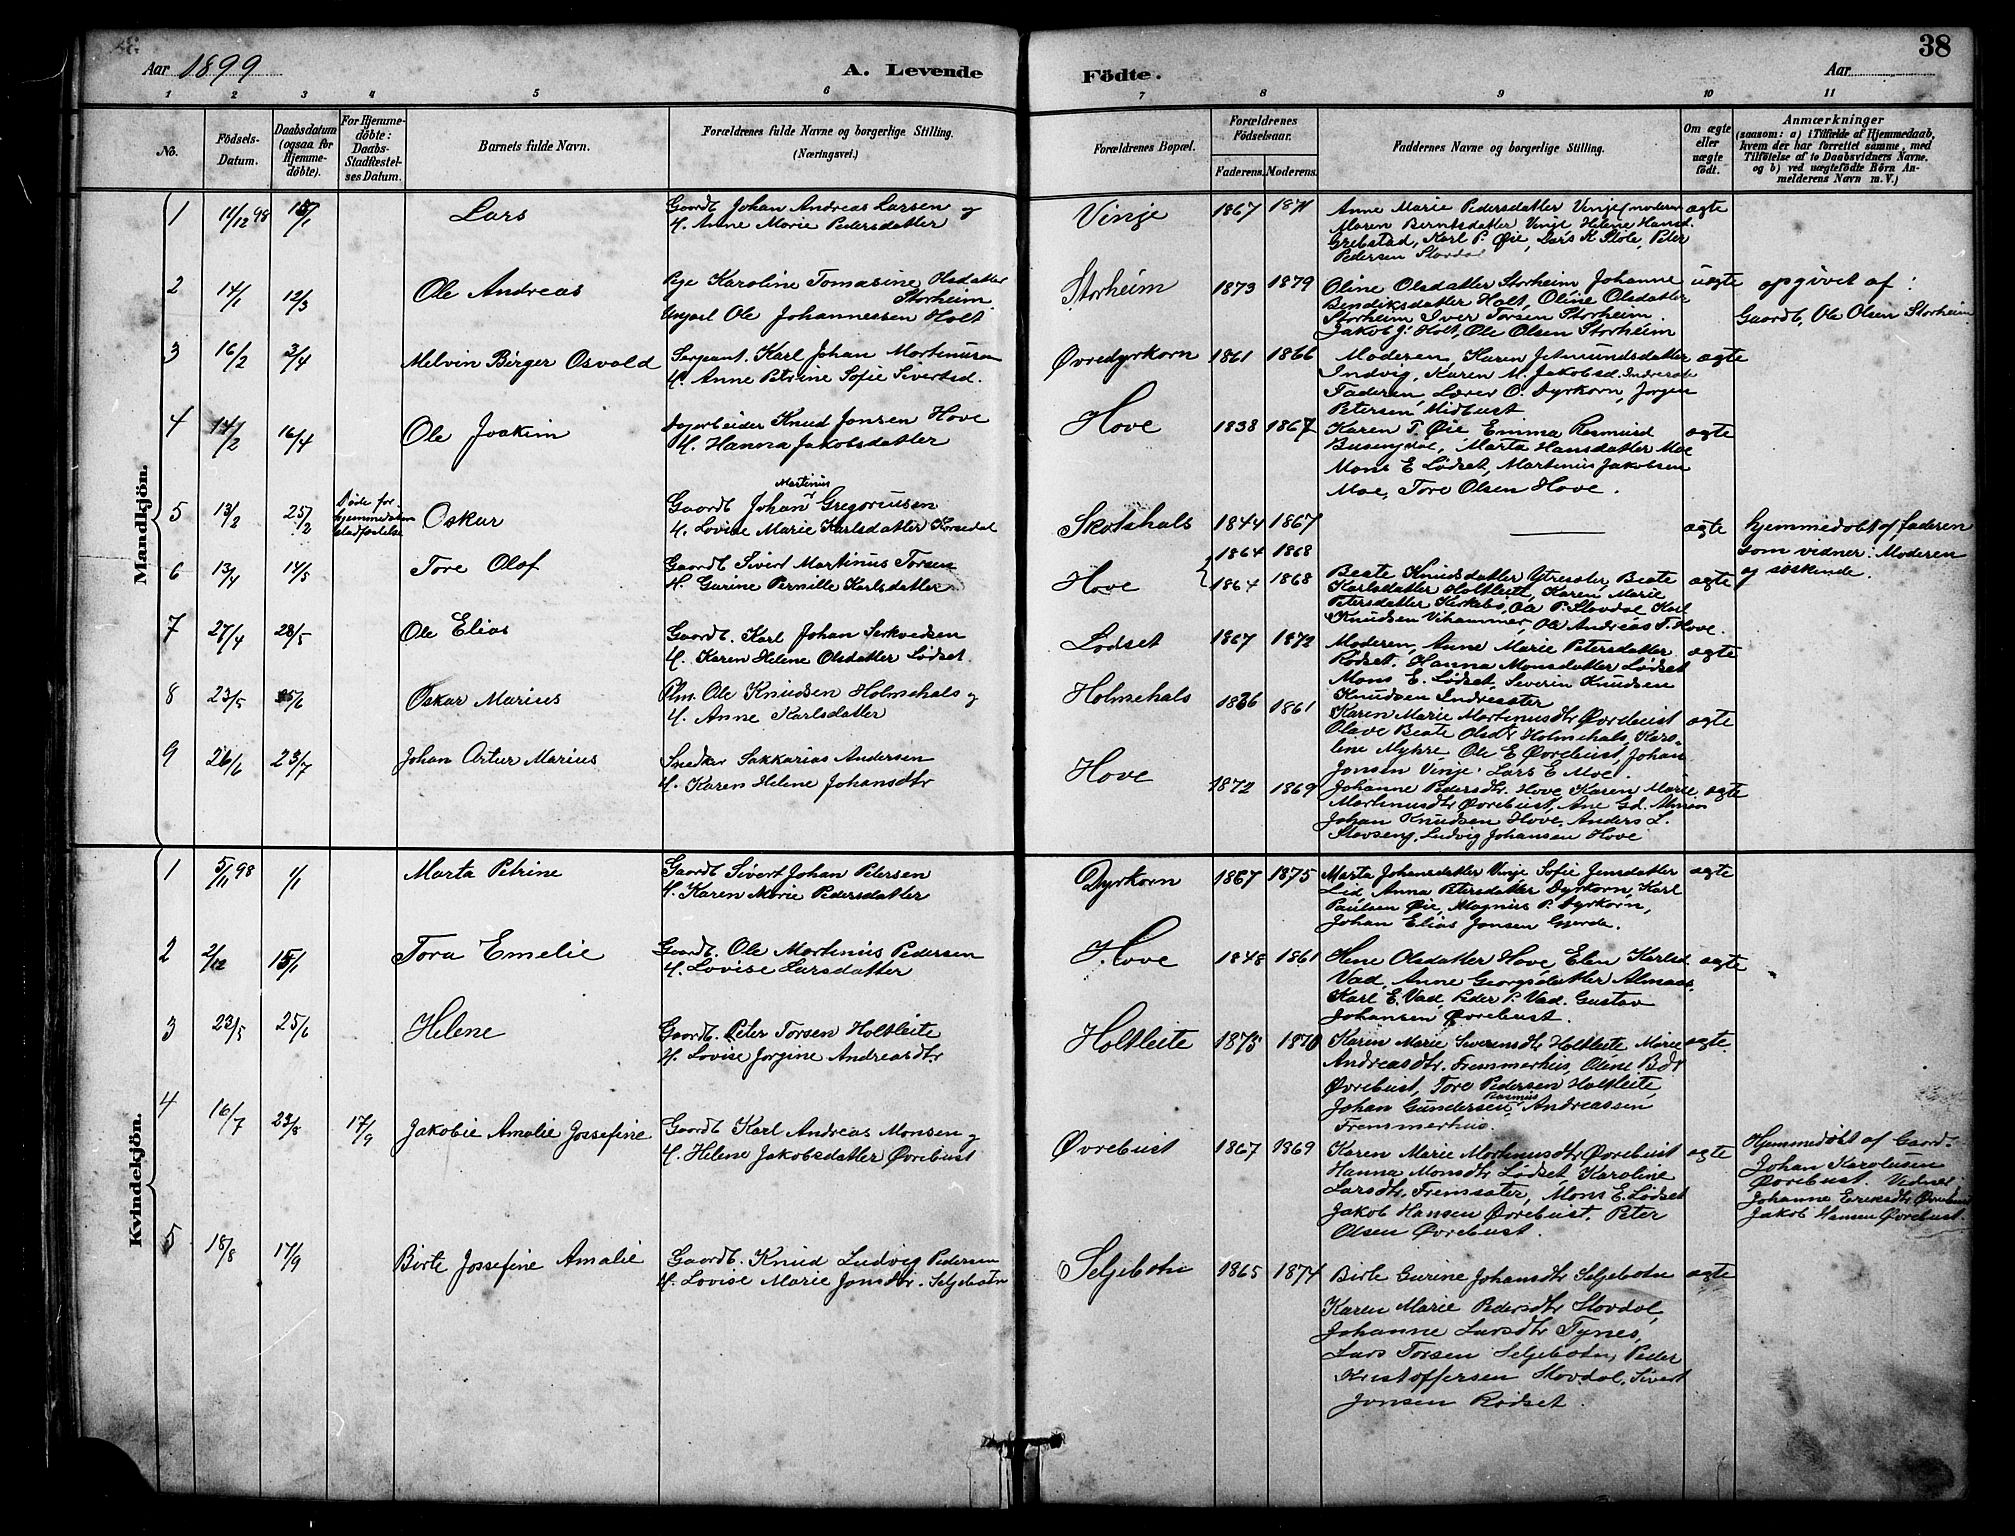 38
Aar 1899
A. Levende Födte.
Aar
1 2 3 4 5 6 7 8 9 10 11
No.
Födsels-Datum.
Daabsdatum (ogsaa for Hjemmedöbte).
For Hjemmedöbte: Daabs-Stadfæstelses Datum.
Barnets fulde Navn.
Forældrenes fulde Navne og borgerlige Stilling.
(Næringsvei.)
Forældrenes Bopæl.
Forældrenes Födselsaar.
Faderens. Moderens.
Faddernes Navne og borgerlige Stilling.
Om ægte eller uægte födt.
Anmærkninger
(saasom: a) i Tilfælde af Hjemmedaab, hvem der har forrettet samme, med Tilföielse af to Daabsvidners Navne, og b) ved uægtefödte Börn Anmelderens Navn m. V.)
Mandkjön.
1 11/12 98 15/1 Lars
Gaardb Johan Andreas Larsen og
H. Anne Marie Pedersdatter
Vinje 1867 1871
Anne Marie Pedersdatter Vinje (moderen
Maren Berntsdatter Vinje, Helene Hansd.
Grebstad, Karl P. Øie, Lars K Stole, Peter
Pedersen Stovdal
ægte
2 14/1 12/3 Ole Andreas
Pige Karoline Tomasine Olsdatter
Storheim
Ungkarl Ole Johannessen Holt
Storheim 1873 1879
Oline Olsdatter Storheim Johanne
Bendiksdatter Holt, Oline Olsdatter
Storheim Iver Torsen Storheim.
Jakob J. Holt, Ole Olsen Storheim
uægte
opgivet af:
Gaardb, Ole Olsen Storheim
3 16/2 3/4 Melvin Birger Osvald
Sergeant. Karl Johan Martinusen
H. Anne Petrine Sofie Sivertsd.
Øvredyrkorn 1861 1866
Moderen, Karen Jetmundsdatter
Indvig, Karen M. Jakobsd. Indresæt
Faderen, Lærer O. Dyrkorn, Jørgen
Petersen Midbust
ægte
4 14/2 16/4 Ole Joakim
Dagarbeider Knud Jonsen Hove
H. Hanna Jakobsdatter
Hove 1838 1867
Karen T. Øie Emma Rasmusd
Busengdal, Marta Hansdatter Moe
Mons E Lødset, Martinus Jakobsen
Moe, Tore Olsen Hove.
ægte
5 13/2 25/2
Døde før
hjemmedaaben
stadfæstelse
Oskar
Martinus
Gaardb Johan Gregoriusen
H. Lovise Marie Karlsdatter Korsedal
Skotshals 1844 1867
ægte
hjemmedøbt af faderen
som vidner: Moderen
og søskende.
1864 1868
6 13/4 14/5 Tore Olaf
Gaardb Sivert Martinus Torsen
H. Gurine Pernille Karlsdatter
Hove 1864 1868
Beate Knudsdatter Ytresæter, Beate
Karlsdatter Holtleite, Karen Marie
Petersdatter Kirkebø, Ole P. Stovdal Karl
Knudsen Vihammer, Ole Andreas T. Hove.
ægte
7 27/4 28/5 Ole Elias
Gaardb. Karl Johan
H. Karen Helene Olsdatter Lødset.
Lødset 1867 1872
Moderen, Anne Marie Petersdatter
Rødset. Hanna Monsdatter Lødset
Mons E. Lødset, Severin Knudsen
Knudsen Indresæter
ægte
8 23/5 25/6 Oskar Marius
Ole Knudsen Holmehals og
H. Anne Karlsdatter
Holmehals 1836 1861
Karen Marie Martinusdtr Øvrebust
Olave Beate Olsdtr Holmehals, Karo-
line Myhre, Ole E Øvrebust, Johan
Jonsen Vinje. Lars E Moe.
ægte
9 26/6 23/7 Johan Artur Marius
Snedker Sakkarias Andersen
H. Karen Helene Johansdtr
Hove 1872 1869
Johanne Pedersdtr. Hove Karen Marie
Martinusdtr Øvrebust, Ane Gd. Almaas
Johan Knudsen Hove, Anders L.
Stovseng, Ludvig Johansen Hove
ægte
Kvindekjön.
1 5/11 98 1/1 Marta Petrine
Gaardb Sivert Johan Petersen
H. Karen Marie Pedersdatter
Dyrkorn 1867 1875
Marta Johansdatter Vinje Sofie Jensdatter
Lid, Anna Petersdatter Dyrkorn, Karl
Paulsen Øie, Magnus P. Dyrkorn,
Johan Elias Jonsen Gjerde.
ægte
2 2/12 15/1 Tora Emelie
Gaardb. Ole Martinus Pedersen
H. Lovise Larsdatter
Hove 1848 1861
Olsdatter Hove, Elen Karlsd
Vad, Anne Georgsdatter Almaas,
Karl E. Vad, Peder P. Vad. Gustav
Johansen Øvrebust.
ægte
3 23/5 25/6 Helene
Gaardb. Peter Torsen Holtleite
H. Lovise Jorgine Andreasdtr
Holtleite 1875 1870
Karen Marie Severinsdtr Holtleite Marie
Andreasdtr. Fremmerhus, Oline Bdr
Øvrebust, Tore Pedersen Holtleite,
Rasmus
Johan Gundersen, Andreassen
Fremmerhus.
ægte
4 16/7 23/8 17/9 Jakobie Amalie Jossefine
Gaardb Karl Andreas Monsen og
H. Helene Jakobsdatter Øvrebust
Øvrebust 1867 1869
Karen Marie Martinusdtr, Øvrebust
Hanna Monsdtr Lødset, Karoline
Larsdtr, Fremsæter, Mons E. Lødset
Jakob Hansen Øvrebust. Peter
Olsen Øvrebust.
ægte
Hjemmedøbt af Gaardb.
Johan Karolusen
Øvrebust. Vidner
Johanne Eriksdtr Øvrebust
Jakob Hansen Øvrebust.
5 18/8 17/9 Birte Jossefine Amalie
Gaardb. Knud Ludvig Pedersen
H. Lovise Marie Jonsdtr. Seljebotn
Seljebotn 1865 1874
Birte Gurine Johansdtr Seljebotn
Karen Marie Pedersdtr Stovdal,
Johanne Larsdtr Tynes,
Lars Torsen Seljebotn, Peder
Kristoffersen Stovdal, Sivert
Jonsen Rødset.
ægte